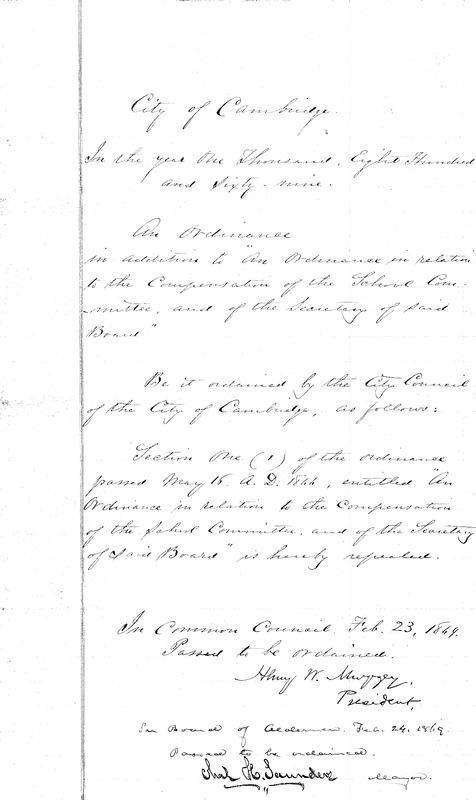 City of Cambridge.
In the year One Thousand, Eight Hundred
and Sixty-nine.
An Ordinance
in addition to "An Ordinance in relation
to the Compensation of the School Com-
-mittee, and of the Secretary of said
Board"
Be it ordained by the City Council
of the City of Cambridge, as follows:
Section One (1) of the ordinance
passed May 16. A. D. 1866, entitled "An
Ordinance in relation to the Compensation
of the School Committee, and of the Secretary
of said Board" is hereby repealed.
In Common Council. Feb. 23, 1869.
Passed to be ordained.
Henry W. Muzzey,
President,
In Board of Aldermen. Feb. 24. 1869.
Passed to be ordained.
Chas H. Saunders Mayor.